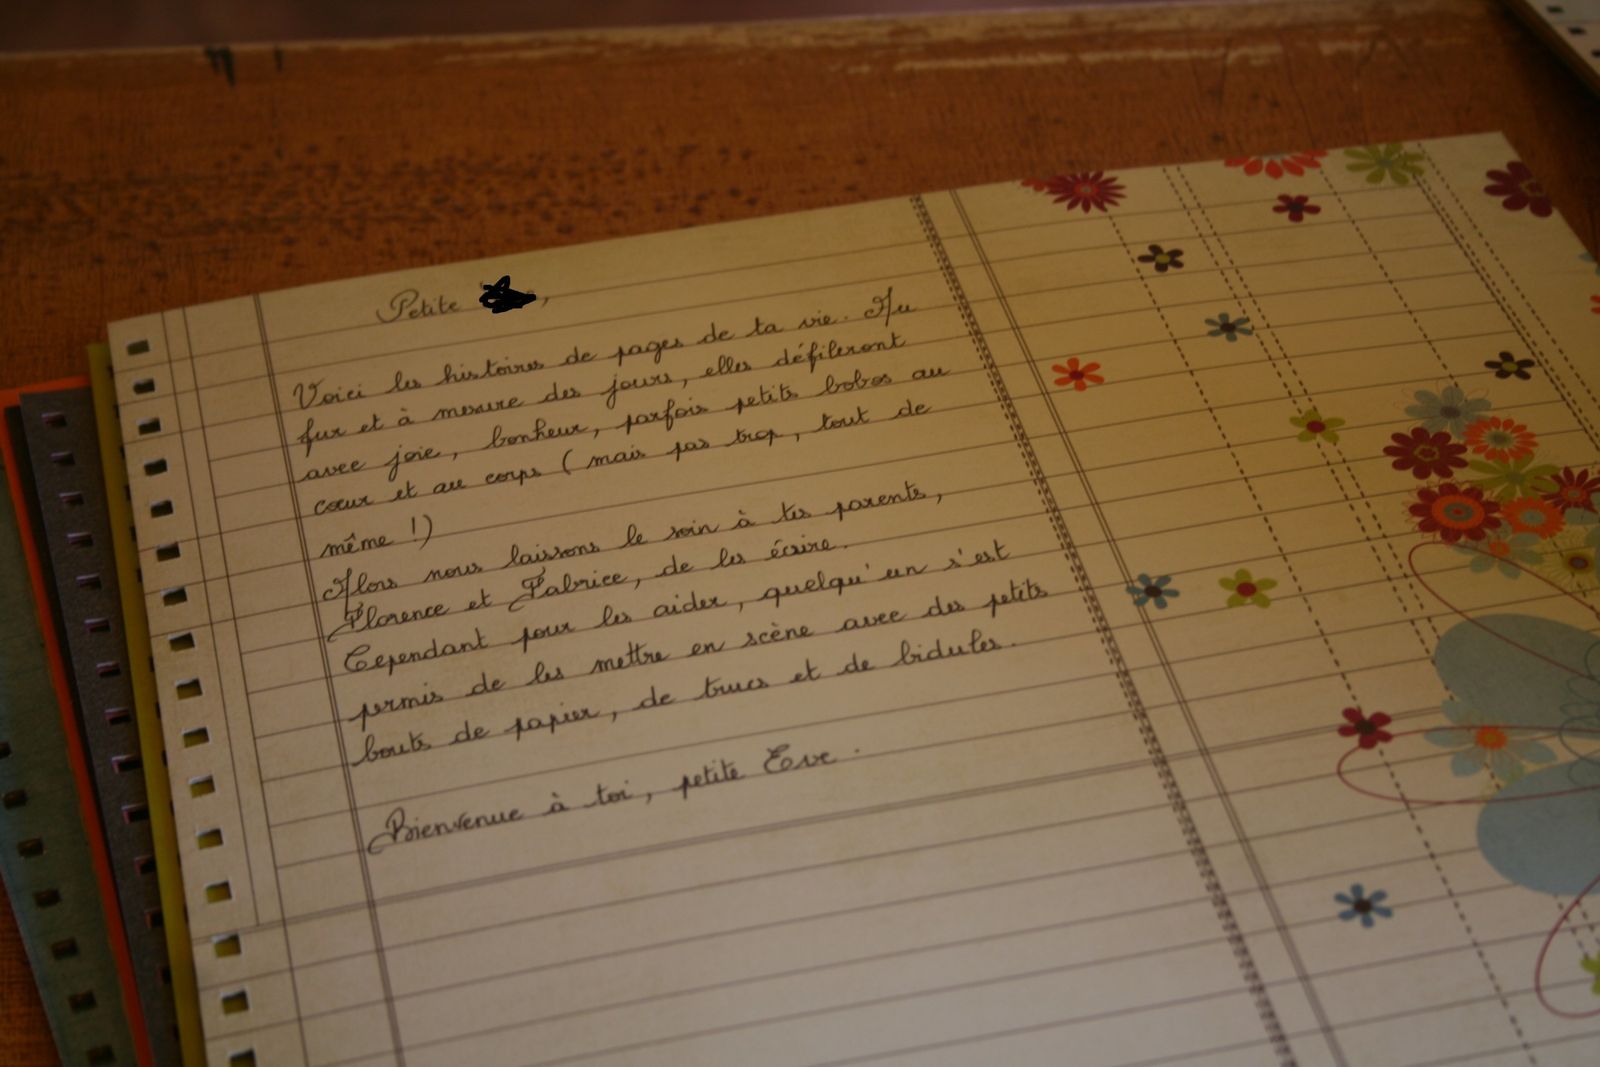 Petite ,
Voici les histoires de pages de ta vie. Au
fur et à mesure des jours, elles défileront
avec joie, bonheur, parfois petits bobos au
cœur et au corps (mais pas trop, tout de
même !)
Alors nous laissons le soin à tes parents,
Florence et Fabrice, de les écrire.
Cependant pour les aider, quelqu'un s'est
permis de les mettre en scène avec des petits
bouts de papier, de trucs et de bidules.
Bienvenue à toi, petite Eve.